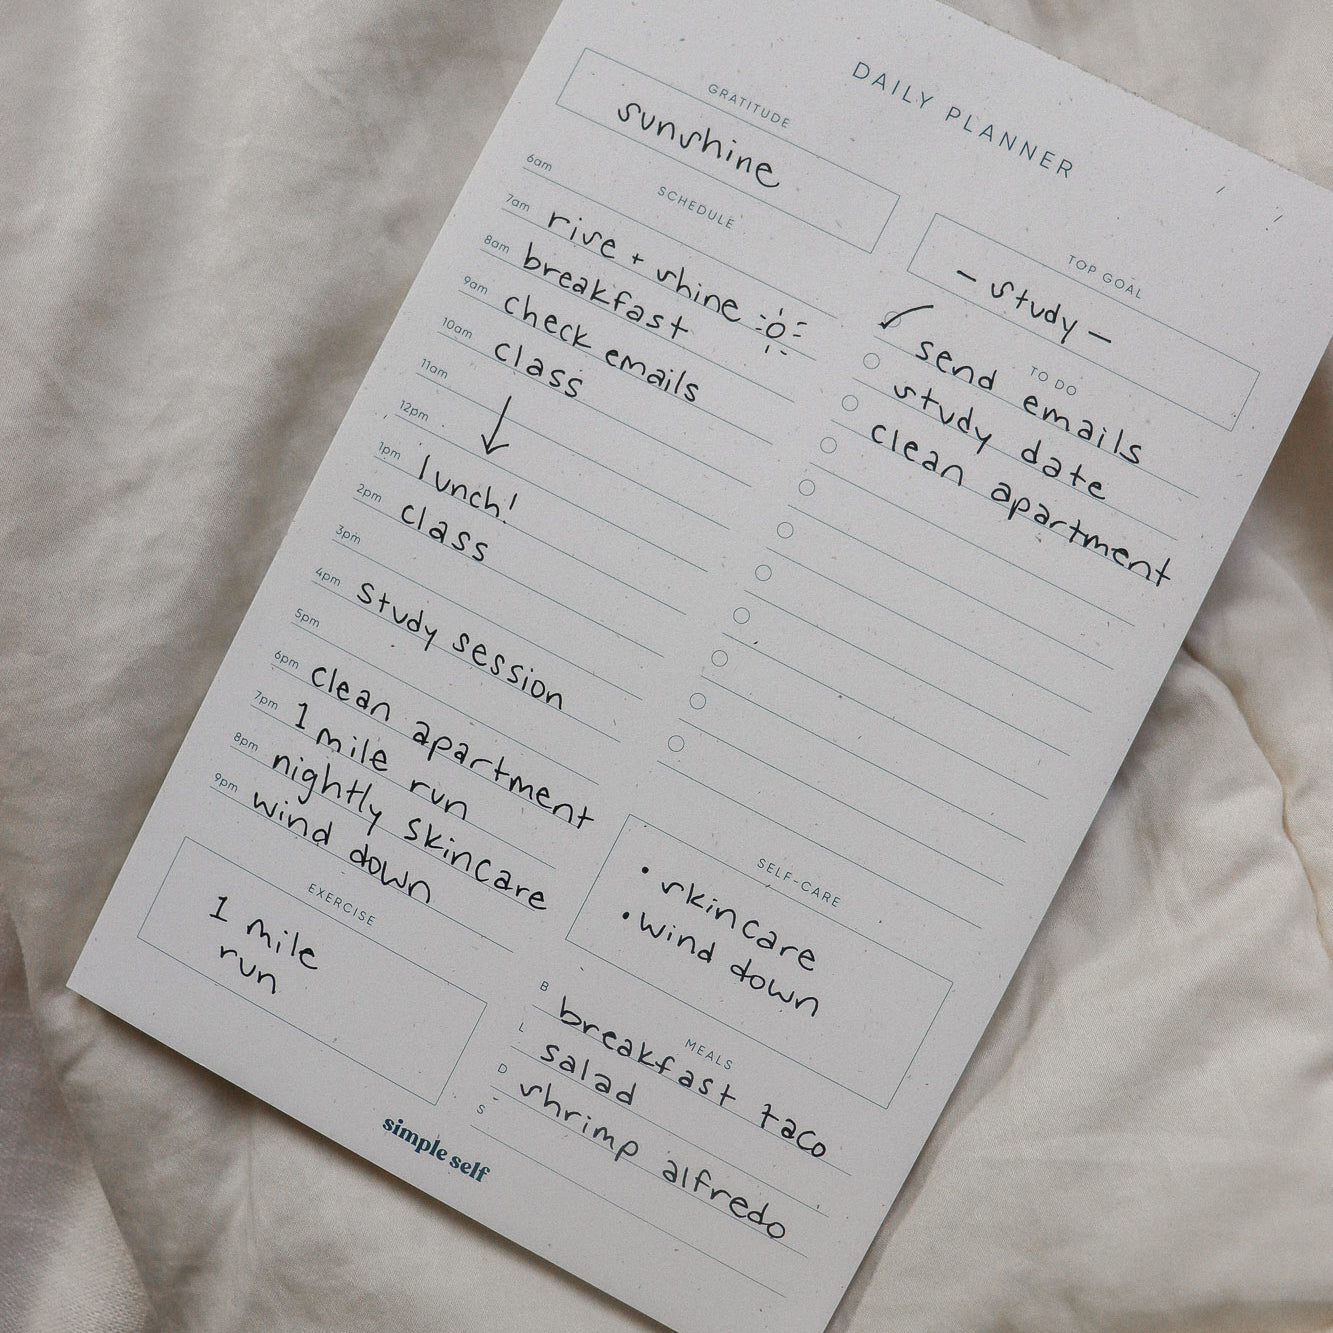 DAILY PLANNER
GRATITUDE
sunshine
SCHEDULE
6am
7am rise + shine
8am breakfast
9am check emails
10am class
11am
12pm
1pm lunch!
2pm class
3pm
4pm study session
5pm
6pm clean apartment
7pm 1 mile run
8pm nightly skincare
9pm wind down
EXERCISE
1 mile
run
TOP GOAL
- study -
TO DO
send emails
study date
clean apartment
SELF-CARE
• skincare
• wind down
MEALS
B breakfast taco
L salad
D shrimp alfredo
S
simple self